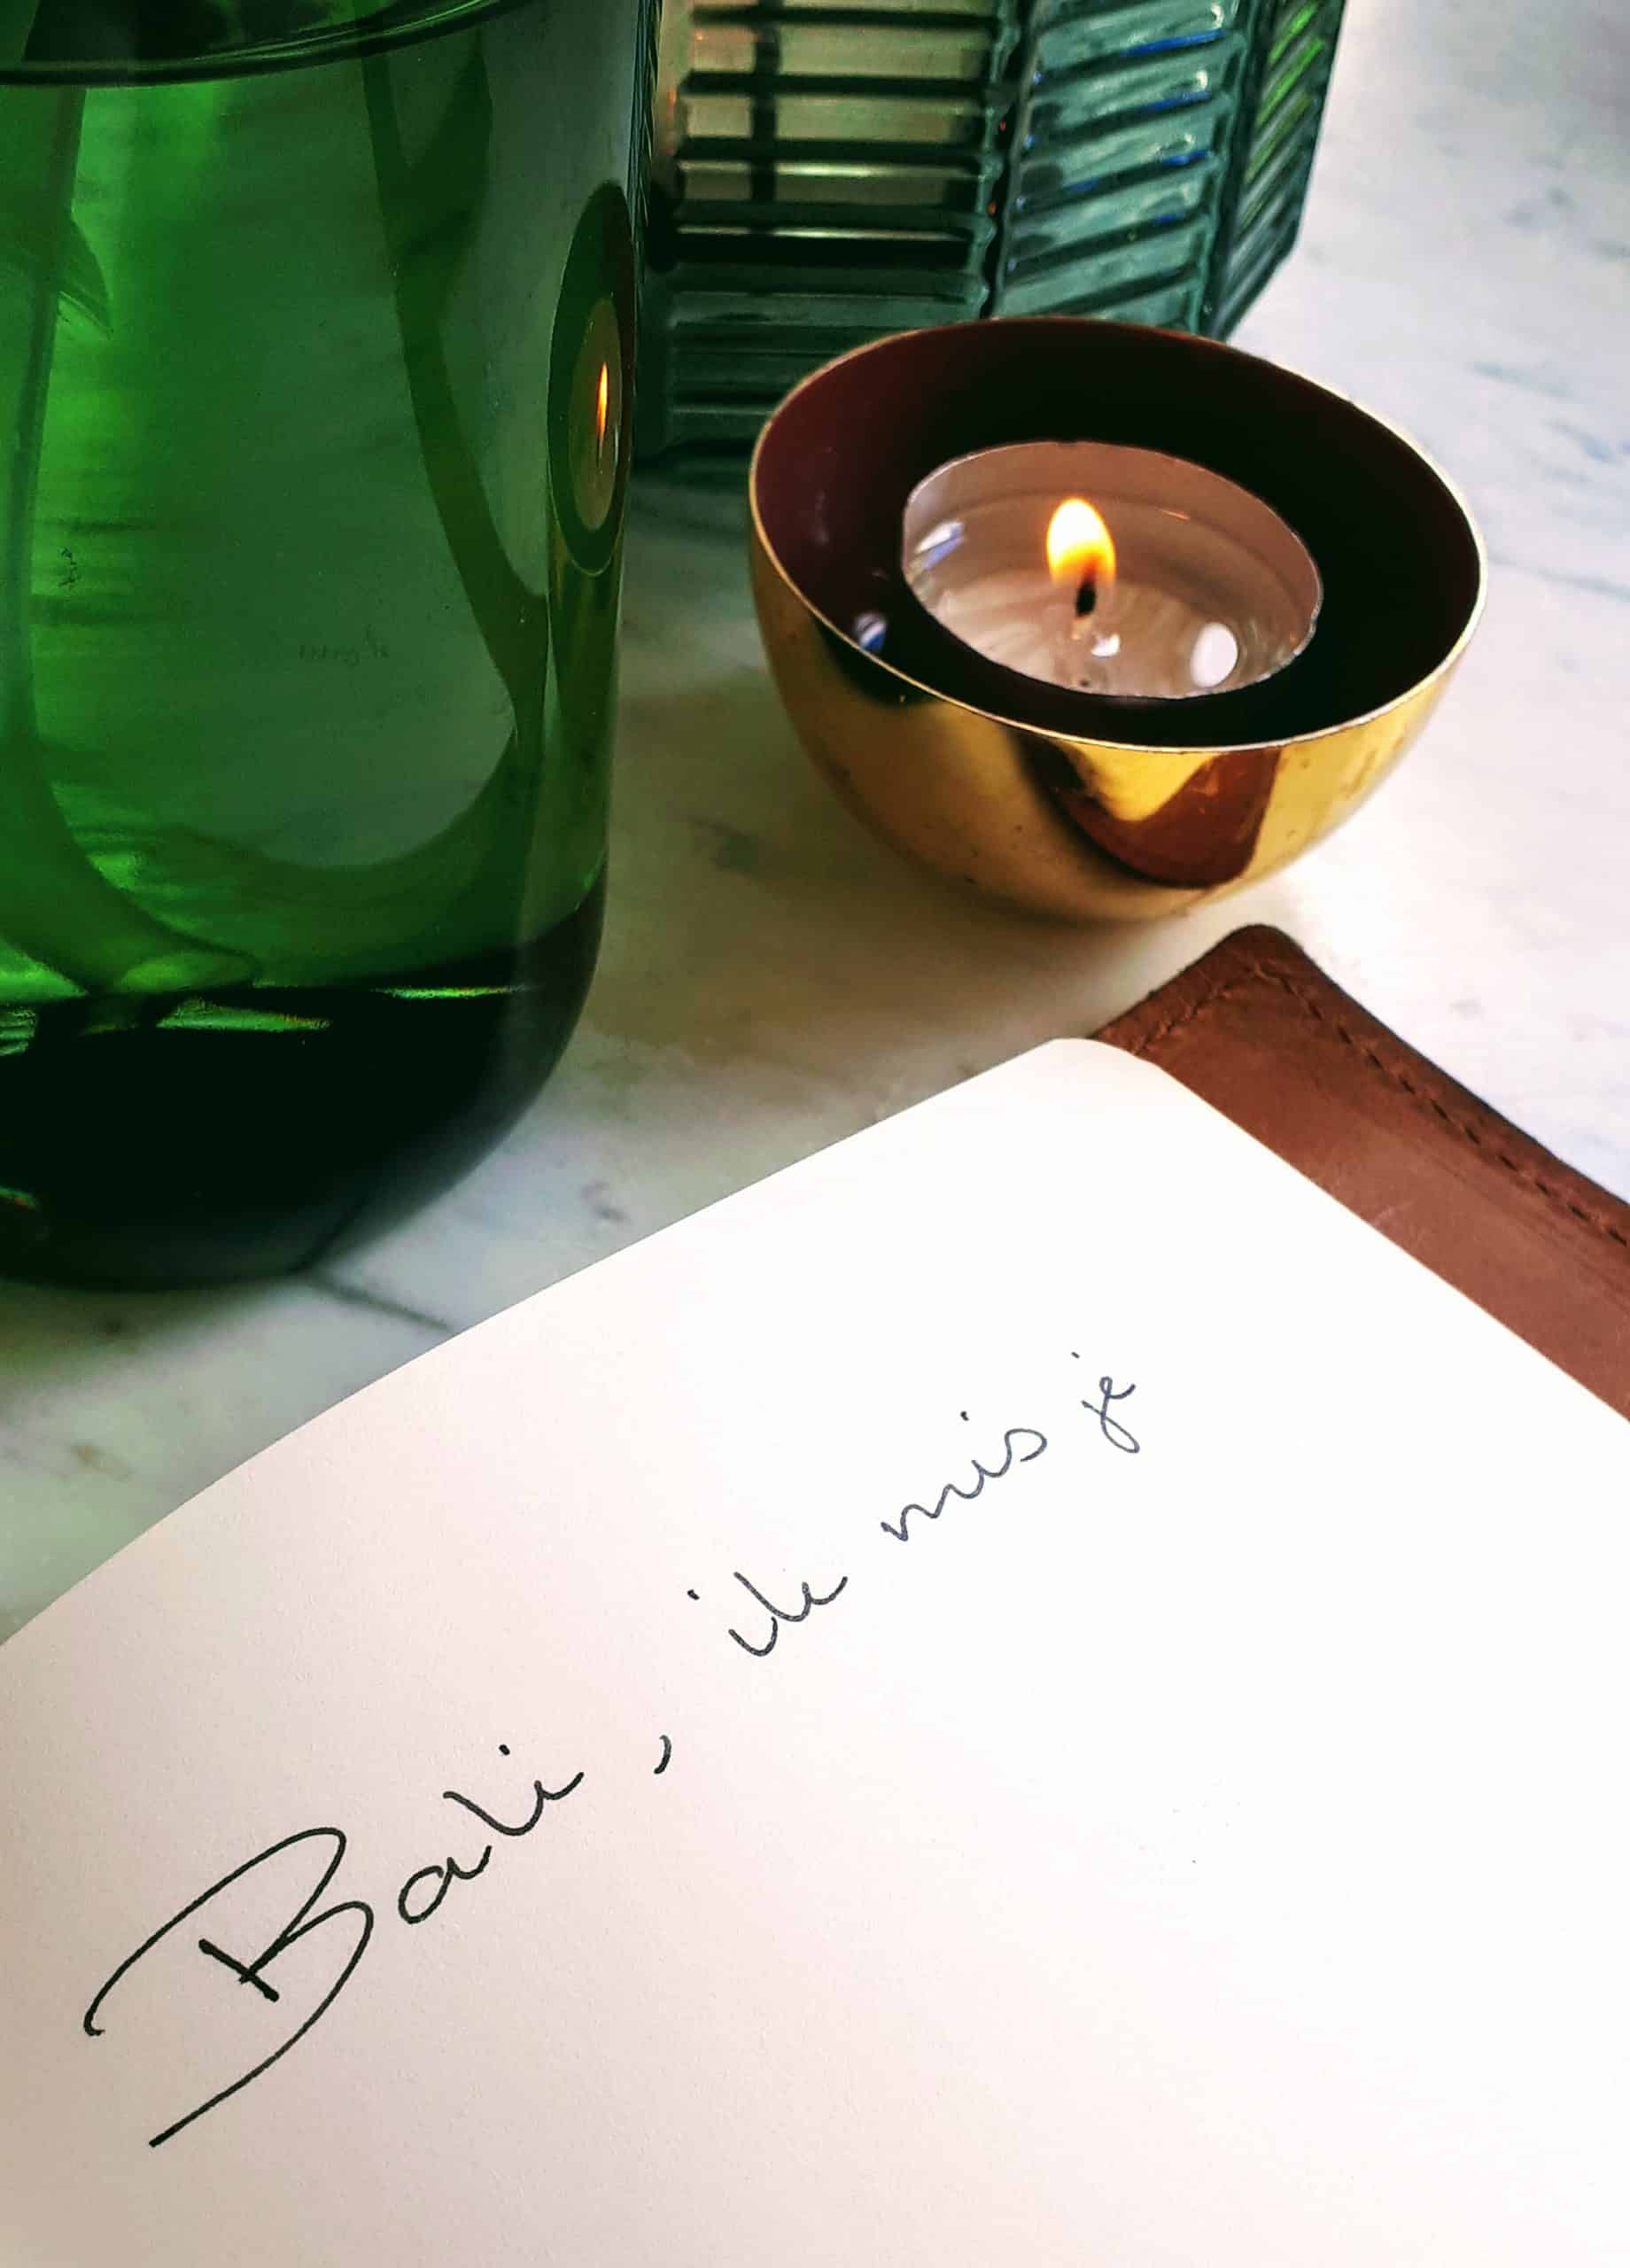 Bali, ik mis je